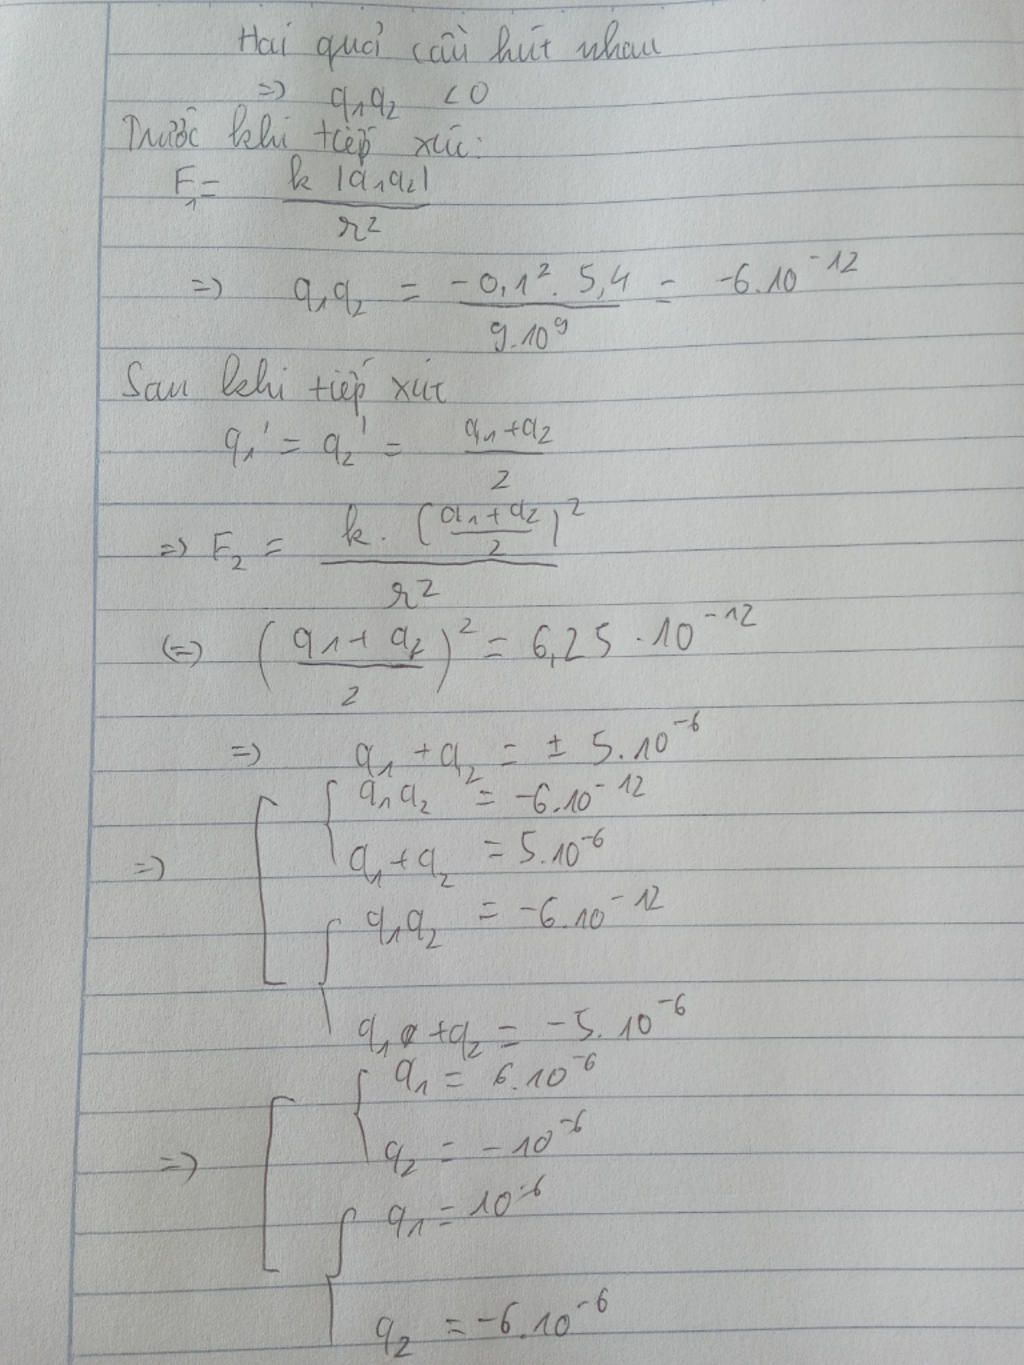 Hai quả cầu hút nhau
=> q₁q₂ < 0
Trước khi tiếp xúc:
F₁ = k |q₁q₂| / r²
=> q₁q₂ = -0,1² . 5,4 / 9.10⁹ = -6.10⁻¹²
Sau khi tiếp xúc
q₁' = q₂' = (q₁+q₂) / 2
=> F₂ = k . ((q₁+q₂)/2)² / r²
(=) ((q₁+q₂)/2)² = 6,25 . 10⁻¹²
=> q₁ + q₂ = ± 5.10⁻⁶
q₁q₂ = -6.10⁻¹²
=> q₁+q₂ = 5.10⁻⁶
q₁q₂ = -6.10⁻¹²
q₁ + q₂ = -5.10⁻⁶
q₁ = 6.10⁻⁶
=> q₂ = -10⁻⁶
q₁ = 10⁻⁶
q₂ = -6.10⁻⁶